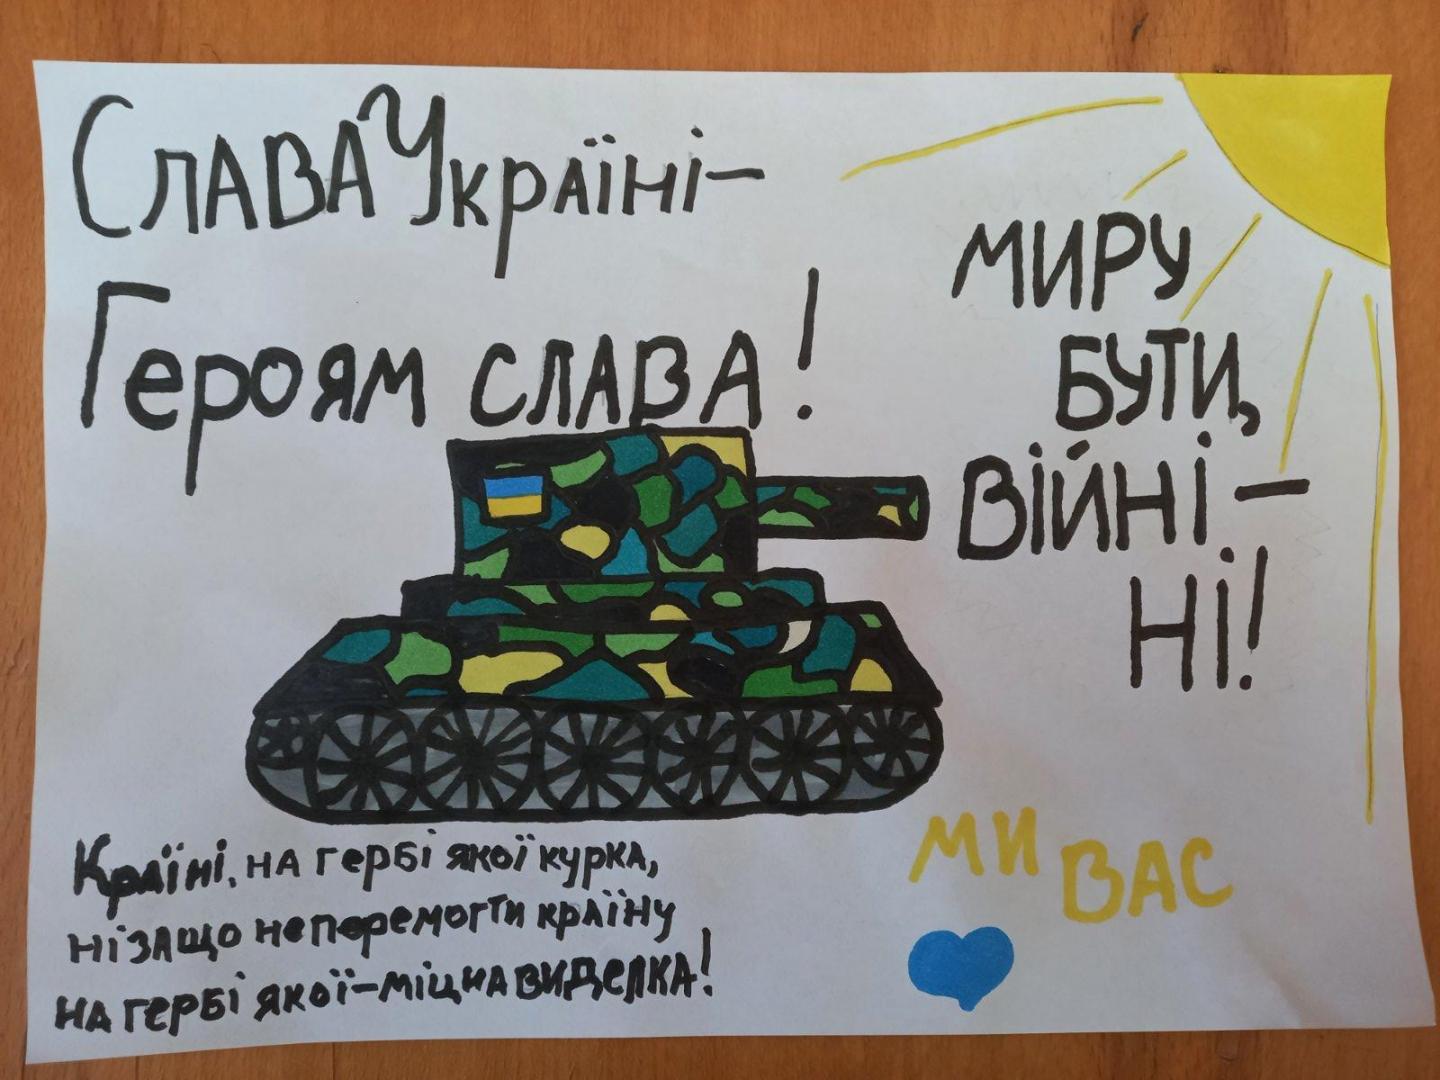 Слава Україні-
Героям слава!
миру
бути,
війні-
ні!
Країні, на гербі якої курка,
нізащо не перемогти країну
на гербі якої-міцна виделка!
ми вас